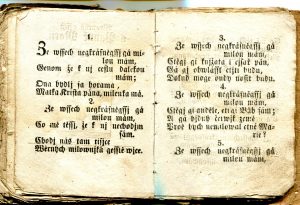 1.
Ze wssech negkrásněgssj gá mi-
lou mám,
Genom že k nj cestu dalekou
mám;
Ona bydlj za horama,
Matka Krysta pána, milenka má.
2.
Ze wssech negkrásněgssj gá
milou mám,
Co mě těssj, že k nj nechodjm
sám.
Chodj nás tam tisjce
Wěrných milownjků gessstě wjce.
3.
Ze wssech negkrásněgssj gá
milou mám,
Ctěgj gi knjžata i cjsař pán,
Gá gj obwlásstě ctjti budu,
Dokud moge ondy nosyt budu.
4.
Ze wssech negkrásněgssj gá
milou mám,
Ctěgj gi andělé, ctj gi
A gá bjdný čerwjk země
Proč bych nemilowal ctné Ma-
rie?
5.
Ze wssech negkrásněgssj gá
milou mám,